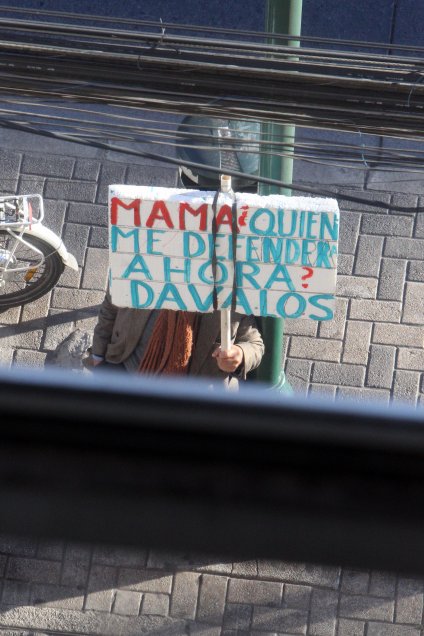 MAMA ¿QUIEN
ME DEFENDERA
AHORA?
DAVALOS